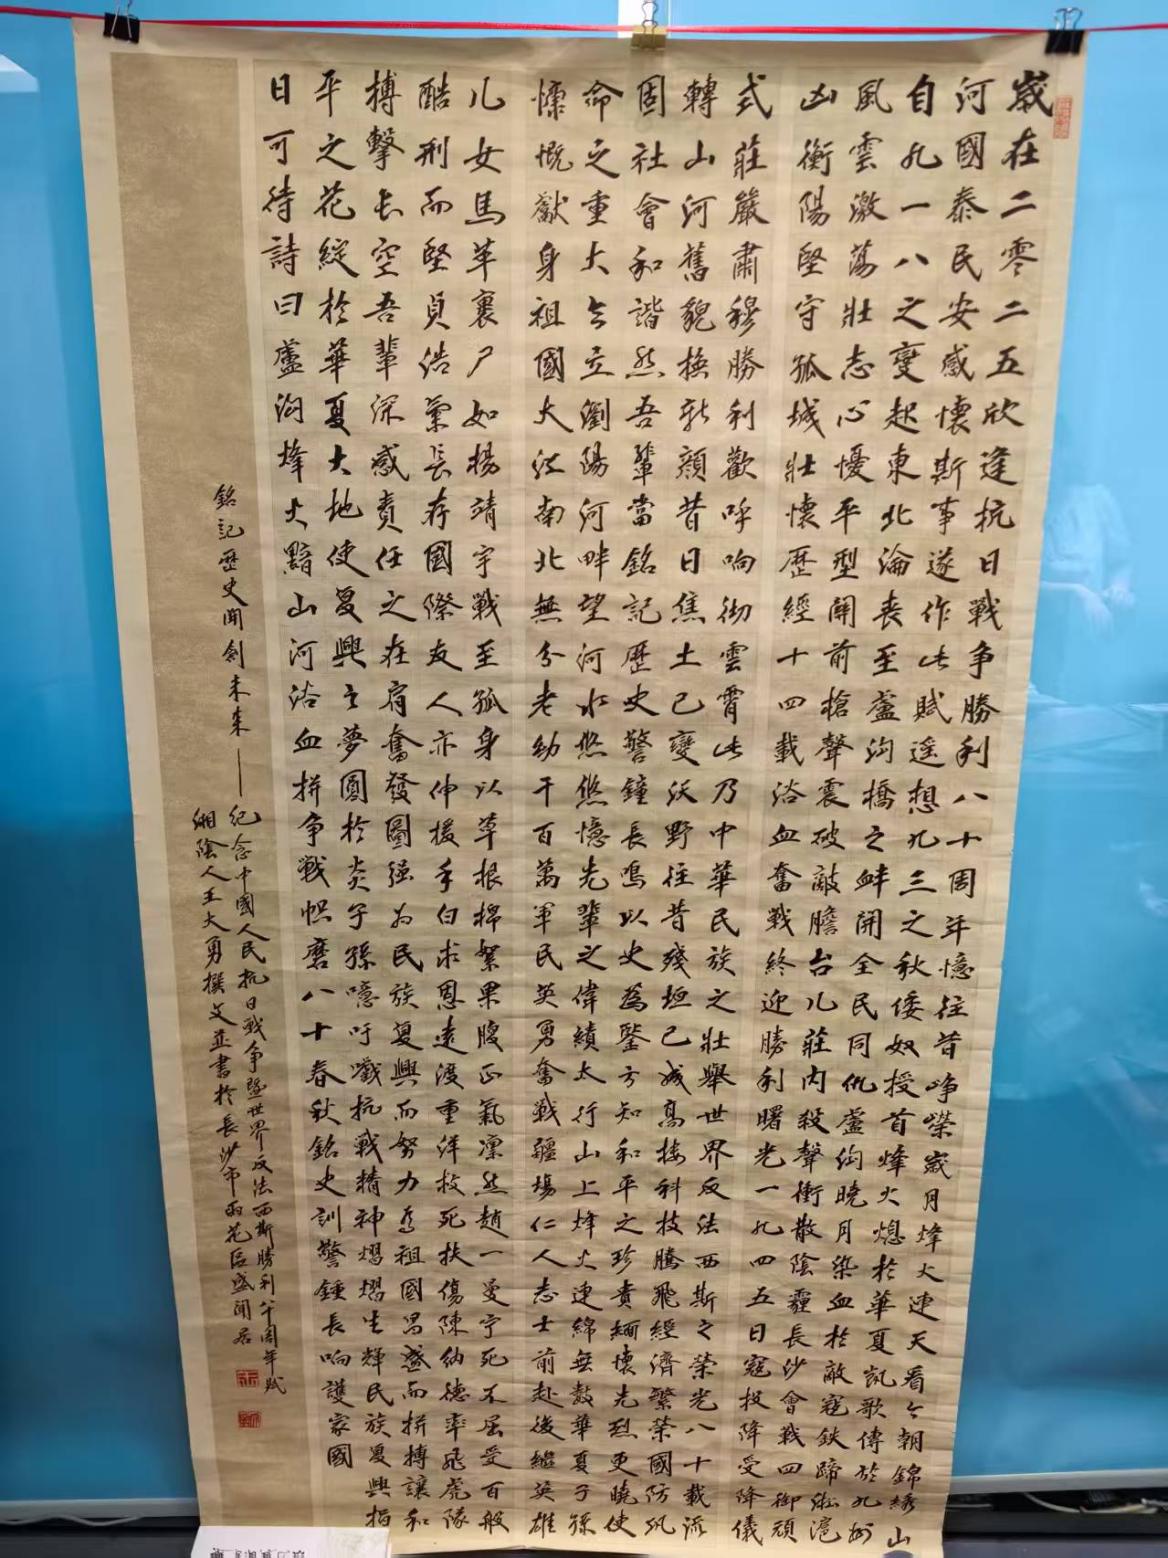 歲在二零二五欣逢抗日戰争勝利八十周年憶往昔崢嶸歲月烽火連天看今朝錦繡山
河國泰民安感懷斯事遂作此賦遥想九三之秋倭奴授首烽火熄於華夏凱歌傳於九州
自九一八之變起東北淪喪至盧沟橋之衅開全民同仇盧沟曉月染血於敵寇鉄蹄淞滬
風雲激蕩壯志心憂平型開前槍聲震破敵膽台儿莊内殺聲衝散陰霾長沙會戰四御頑
凶衡陽堅守孤城壯懷歷經十四載浴血奮戰終迎勝利曙光一九四五日寇投降受降儀
式莊嚴肅穆勝利歡呼响彻雲霄此乃中華民族之壯舉世界反法西斯之榮光八十載流
轉山河舊貌换新顔昔日焦土已變沃野往昔殘垣已成高楼科技騰飛經濟繁荣國防巩
固社會和諧然吾輩當銘記歷史警鐘長鳴以史為鑒方知和平之珍貴緬懷先烈更曉使
命之重大今立瀏陽河畔望河水悠悠憶先輩之偉績太行山上烽火連綿無數華夏子孫
慷慨獻身祖國大江南北無分老幼千百萬軍民英勇奮戰疆場仁人志士前赴後繼英雄
儿女馬革裹尸如楊靖宇戰至孤身以草根棉絮果腹正氣凛然趙一曼宁死不屈受百般
酷刑而堅貞浩氣長存國際友人亦伸援手白求恩遠渡重洋救死扶傷陳纳德率飛虎隊
搏擊长空吾輩深感責任之在肩奮發圖强为民族复興而努力為祖國昌盛而拼搏讓和
平之花綻於華夏大地使复興之夢圓於炎子孫噫吁戲抗戰精神熠熠生輝民族复興指
日可待詩曰盧沟烽火黯山河浴血拼争戰帜磨八十春秋銘史訓警鍾長响護家國
銘記歷史開創未来——纪念中國人民抗日战争暨世界反法西斯勝利八十周年赋
湘陰人王大勇撰文並書於長沙市雨花區盛開居